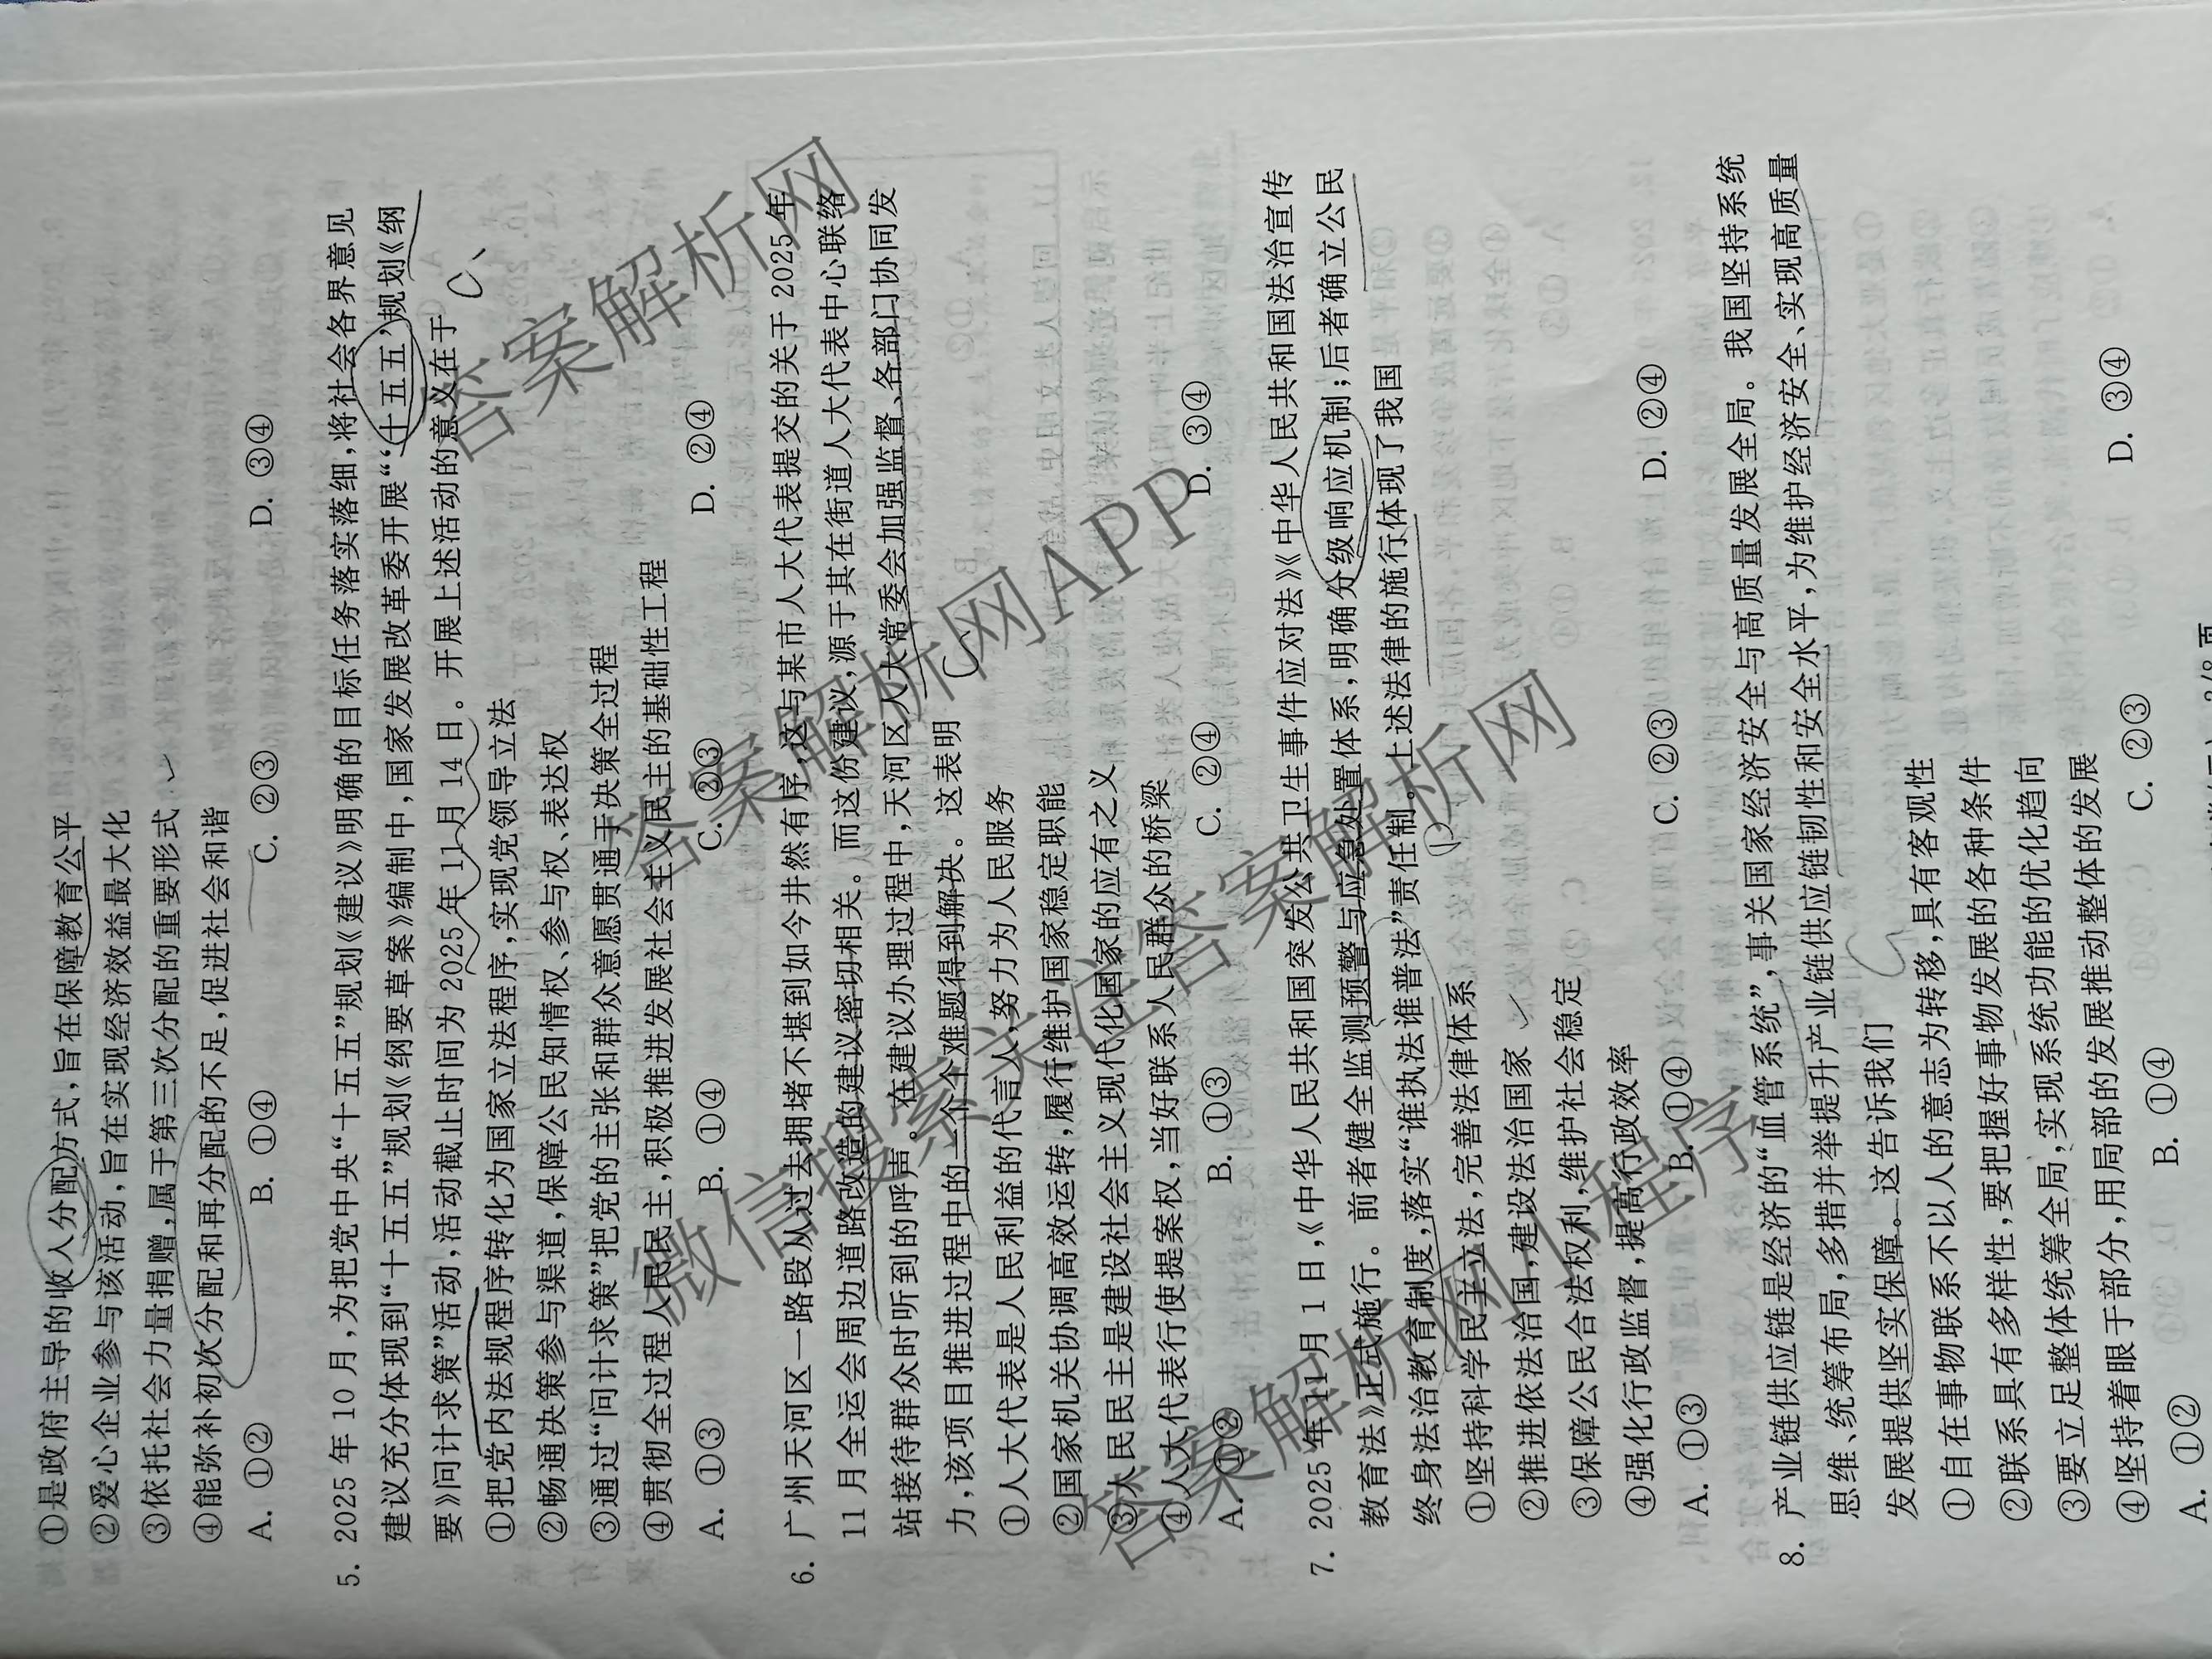 ①是政府主导的收入分配方式,旨在保障教育公平
②爱心企业参与该活动,旨在实现经济效益最大化
③依托社会力量捐赠,属于第三次分配的重要形式
④能弥补初次分配和再分配的不足,促进社会和谐
A. ①② B. ①④ C. ②③ D. ③④
5. 2025年10月,为把党中央“十五五”规划《建议》明确的目标任务落实落细,将社会各界意见
建议充分体现到“十五五”规划《纲要草案》编制中,国家发展改革委开展“‘十五五’规划《纲
要》问计求策”活动,活动截止时间为2025年11月14日。开展上述活动的意义在于
C、
①把党内法规程序转化为国家立法程序,实现党领导立法
②畅通决策参与渠道,保障公民知情权、参与权、表达权
③通过“问计求策”把党的主张和群众意愿贯通于决策全过程
④贯彻全过程人民民主,积极推进发展社会主义民主的基础性工程
A. ①③ B. ①④ C. ②③ D. ②④
6. 广州天河区一路段从过去拥堵不堪到如今井然有序,这与某市人大代表提交的关于2025年
11月全运会周边道路改造的建议密切相关。而这份建议,源于其在街道人大代表中心联络
站接待群众时听到的呼声。在建议办理过程中,天河区人大常委会加强监督、各部门协同发
力,该项目推进过程中的一个个难题得到解决。这表明
C
①人大代表是人民利益的代言人,努力为人民服务
②国家机关协调高效运转,履行维护国家稳定职能
③人民民主是建设社会主义现代化国家的应有之义
④人大代表行使提案权,当好联系人民群众的桥梁
A. ①② B. ①③ C. ②④ D. ③④
7. 2025年11月1日,《中华人民共和国突发公共卫生事件应对法》《中华人民共和国法治宣传
教育法》正式施行。前者健全监测预警与应急处置体系,明确分级响应机制;后者确立公民
终身法治教育制度,落实“谁执法谁普法”责任制。上述法律的施行体现了我国
D
①坚持科学民主立法,完善法律体系
②推进依法治国,建设法治国家
③保障公民合法权利,维护社会稳定
④强化行政监督,提高行政效率
A. ①③ B. ①④ C. ②③ D. ②④
8. 产业链供应链是经济的“血管系统”,事关国家经济安全与高质量发展全局。我国坚持系统
思维、统筹布局,多措并举提升产业链供应链韧性和安全水平,为维护经济安全、实现高质量
发展提供坚实保障。这告诉我们
①自在事物联系不以人的意志为转移,具有客观性
②联系具有多样性,要把握好事物发展的各种条件
③要立足整体统筹全局,实现系统功能的优化趋向
④坚持着眼于部分,用局部的发展推动整体的发展
A. ①② B. ①④ C. ②③ D. ③④
答案解析网
答案解析网APP
微信搜索关注答案解析网
答案解析网小程序